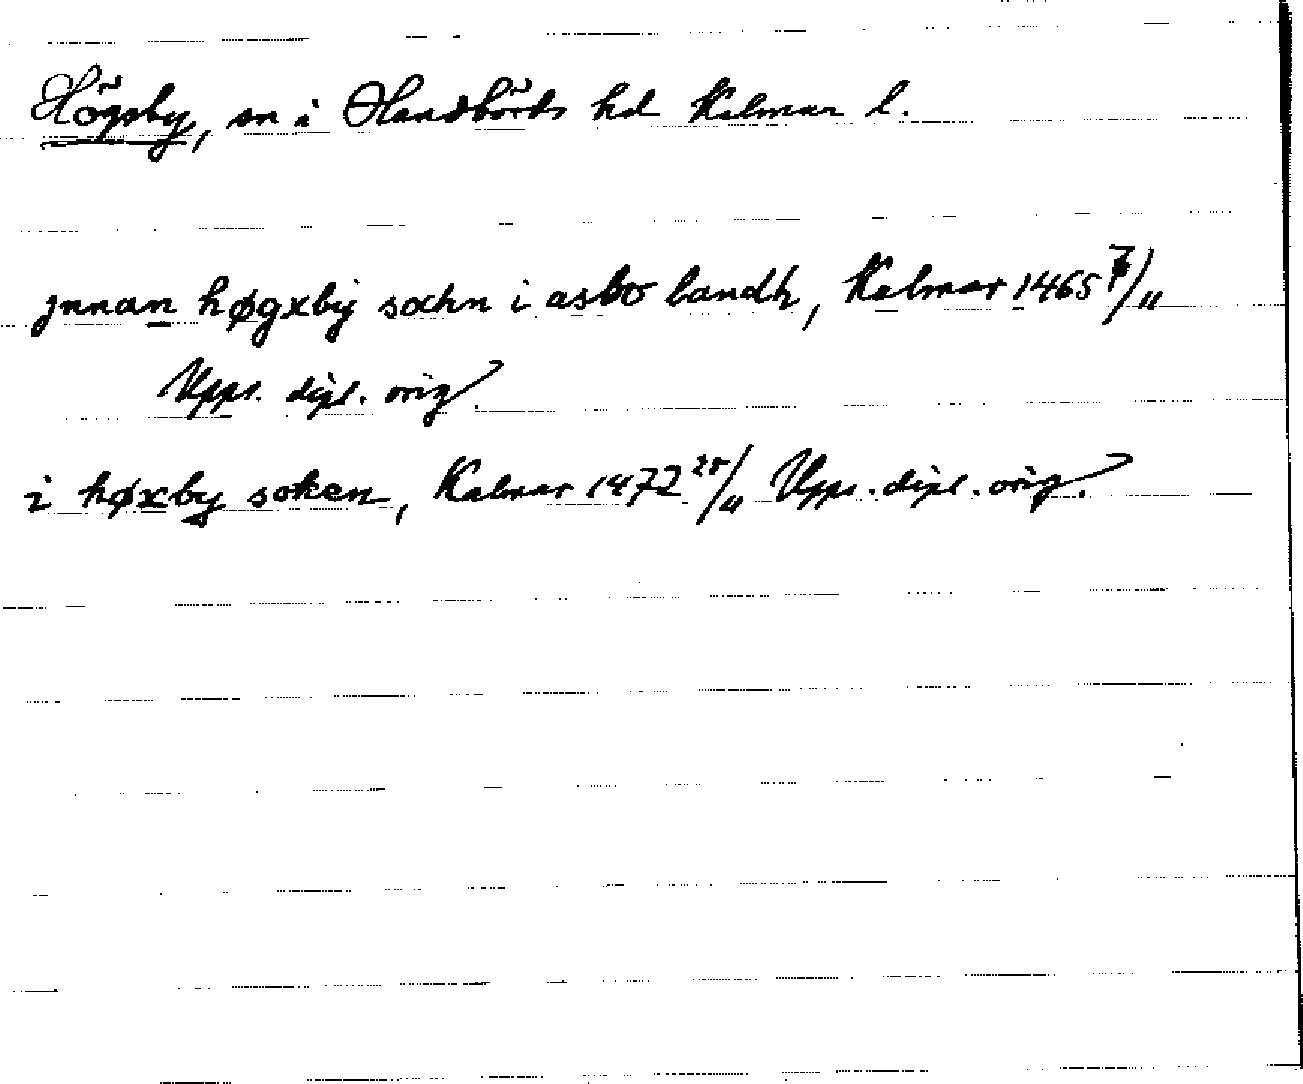 Högsby, sn i Handbörds hd Kalmar l.
jnnan høgxby sochn i asbo landh, Kalmar 1465 7/11
Upps. dipl. orig.
i høxby soken, Kalmar 1472 25/11 Upps. dipl. orig.